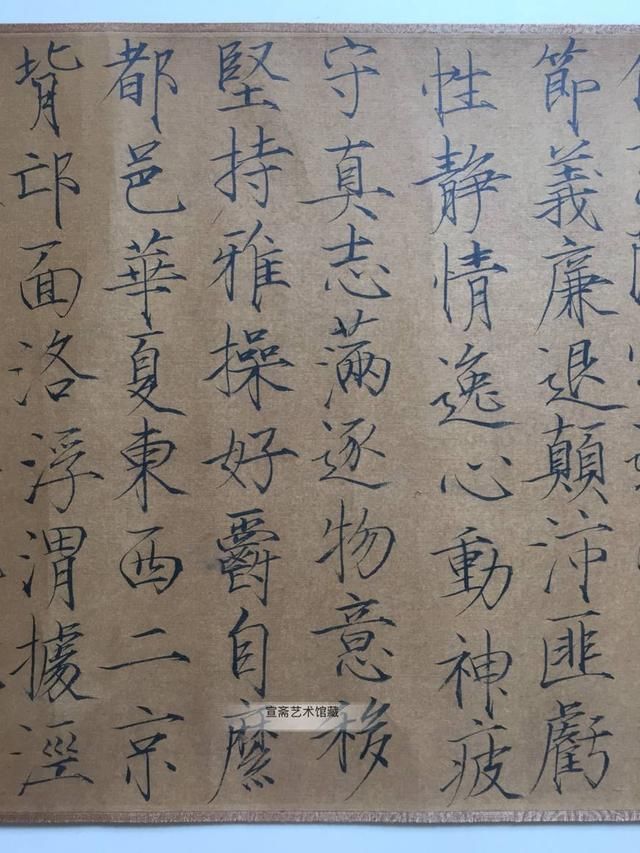 節義廉退顛沛匪虧
性靜情逸心動神疲
守真志滿逐物意移
堅持雅操好爵自縻
都邑華夏東西二京
背邙面洛浮渭據涇
宣斋艺术馆藏